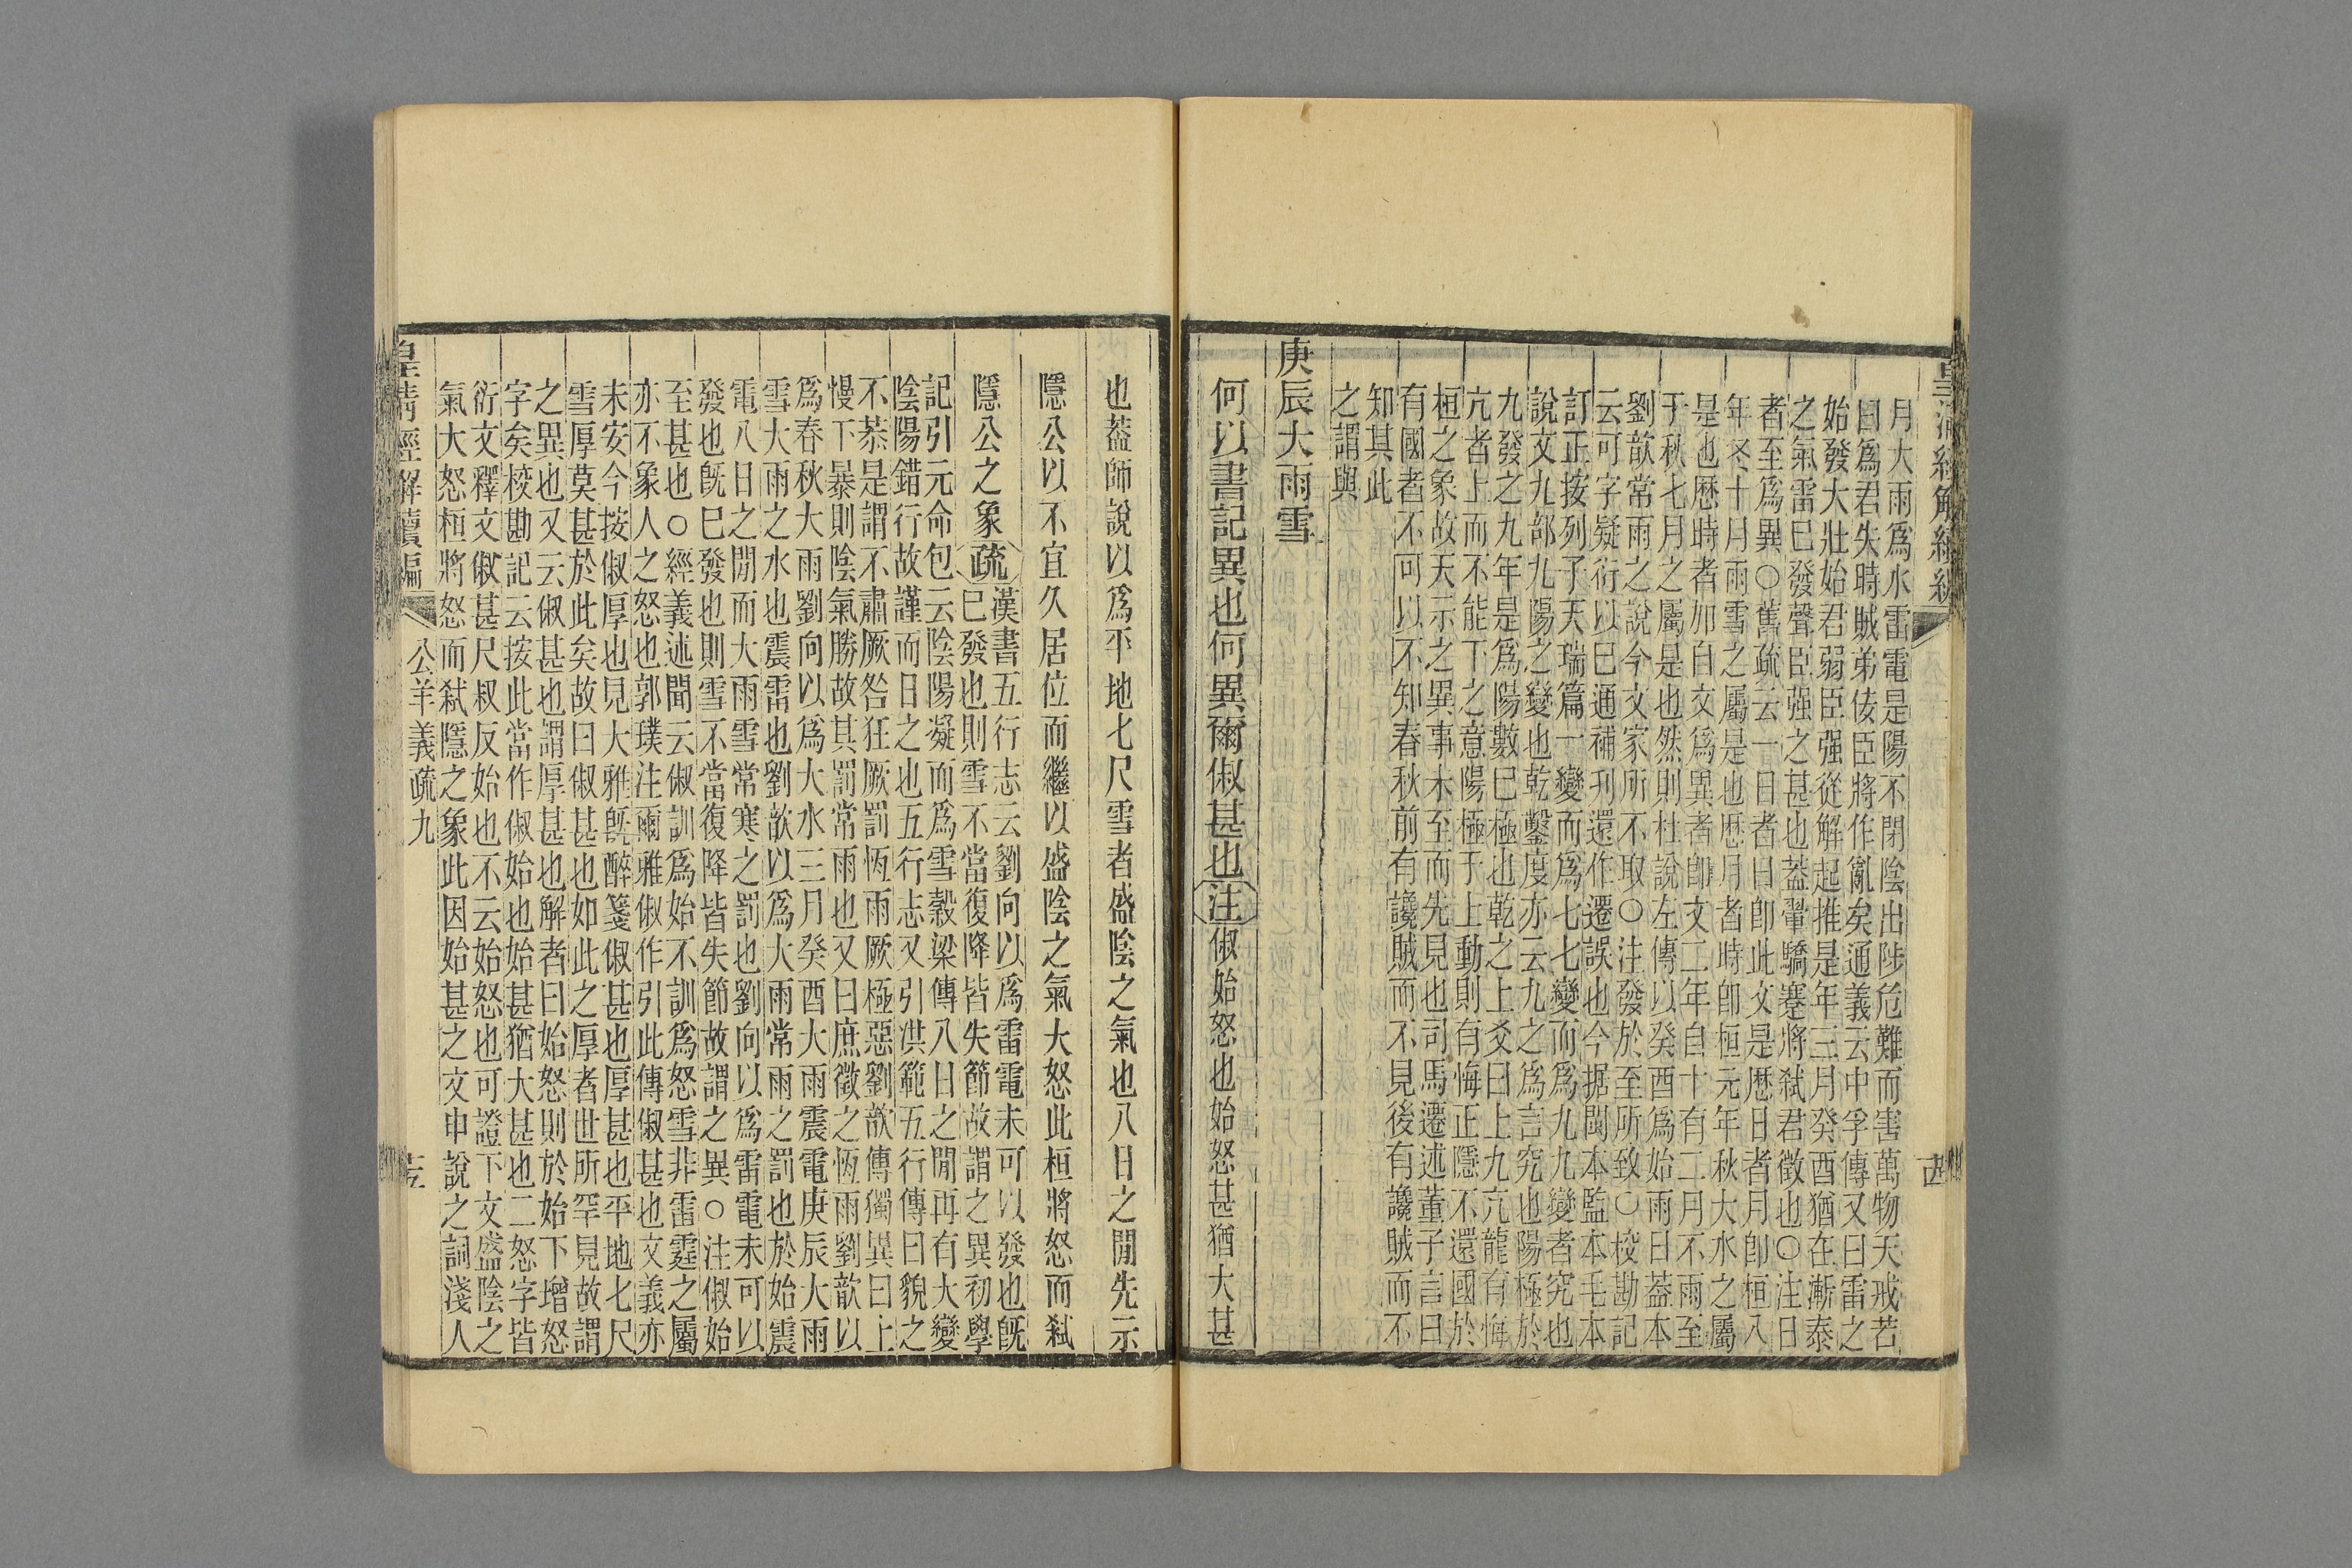 皇清經解續編
古
月大雨爲水雷電是陽不閉陰出陟危難而害萬物天戒若
曰爲君失時賊弟佞臣將作亂矣通義云中孚傳又曰雷之
始發大壯始君弱臣强從解起推是年三月癸酉猶在漸泰
之氣雷巳發聲臣强之甚也蓋翬驕蹇將弒君徵也〇注日
者至爲異〇舊疏云一日者日卽此文是歷日者月卽桓八
年冬十月雨雪之屬是也歷月者時卽桓元年秋大水之屬
是也歷時者加自文爲異者卽文二年自十有二月不雨至
于秋七月之屬是也然則杜說左傳以癸酉爲始雨日蓋本
劉歆常雨之說今文家所不取〇注發於至所致〇校勘記
云可字疑衍以巳通補刋還作遷誤也今据閩本監本毛本
訂正按列子天瑞篇一變而爲七七變而爲九九變者究也
說文九部九陽之變也乾鑿度亦云九之爲言究也陽極於
九發之九年是爲陽數巳極也乾之上爻曰上九亢龍有悔
亢者上而不能下之意陽極于上動則有悔正隱不還國於
桓之象故天示之異事未至而先見也司馬遷述董子言曰
有國者不可以不知春秋前有讒賊而不見後有讒賊而不
知其此
之謂與
庚辰大雨雪
何以書記異也何異爾俶甚也注俶始怒也始怒甚猶大甚
也蓋師說以爲平地七尺雪者盛陰之氣也八日之閒先示
隱公以不宜久居位而繼以盛陰之氣大怒此桓將怒而弒
隱公之象疏漢書五行志云劉向以爲雷電未可以發也旣
巳發也則雪不當復降皆失節故謂之異初學
記引元命包云陰陽凝而爲雪穀梁傳八日之閒再有大變
陰陽錯行故謹而日之也五行志又引洪範五行傳曰貌之
不恭是謂不肅厥咎狂厥罰恆雨厥極惡劉歆傳獨異曰上
慢下暴則陰氣勝故其罰常雨也又曰庶徵之恆雨劉歆以
爲春秋大雨劉向以爲大水三月癸酉大雨震電庚辰大雨
雪大雨之水也震雷也劉歆以爲大雨常雨之罰也於始震
電八日之閒而大雨雪常寒之罰也劉向以爲雷電未可以
發也旣巳發也則雪不當復降皆失節故謂之異〇注俶始
至甚也〇經義述聞云俶訓爲始不訓爲怒雪非雷霆之屬
亦不象人之怒也郭璞注爾雅俶作引此傳俶甚也文義亦
未安今按俶厚也見大雅旣醉箋俶甚也厚甚也平地七尺
雪厚莫甚於此矣故曰俶甚也如此之厚者世所罕見故謂
之異也又云俶甚也謂厚甚也解者曰始怒則於始下增怒
字矣校勘記云按此當作俶始也始甚猶大甚也二怒字皆
衍文釋文俶甚尺叔反始也不云始怒也可證下文盛陰之
氣大怒桓將怒而弒隱之象此因始甚之文申說之詞淺人
皇清經解續編
公羊義疏九
十五